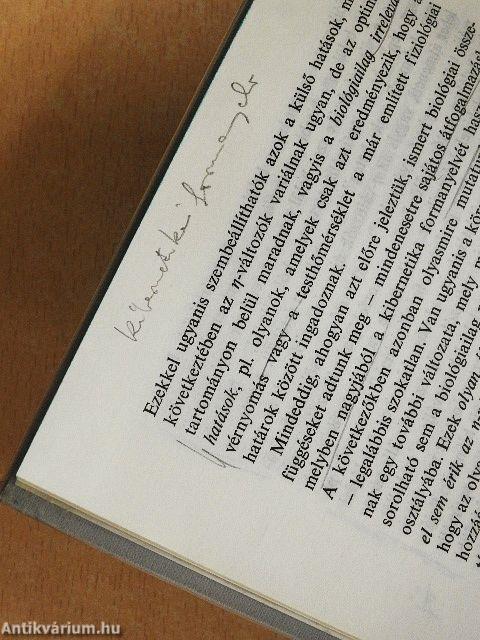 Ezekkel ugyanis szembeállíthatók azok a külső hatások, m
következtében az η-változók variálnak ugyan, de az optim
tartományon belül maradnak, vagyis a biológiailag irrelev
hatások, pl. olyanok, amelyek csak azt eredményezik, hogy a
vérnyomás vagy a testhőmérséklet a már említett fiziológiai
határok között ingadoznak.
Mindeddig, ahogyan azt előre jeleztük, ismert biológiai össze-
függéseket adtunk meg – mindenesetre sajátos átfogalmazási
melyben nagyjából a kibernetika formanyelvét hasz
A következőkben azonban olyasmire mutatu
– legalábbis szokatlan. Van ugyanis a kö
nak egy további változata, mely
sorolható sem a biológiailag
osztályába. Ezek olyan
el sem érik az
hogy az oly
hozzá
Antikvárium.hu